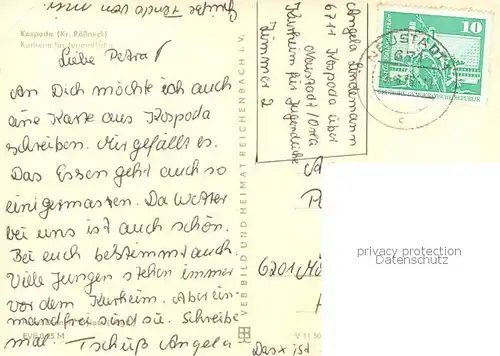 Kospoda (Kr. Pößneck)
Kurheim für Jugendliche
Liebe Petra!
An Dich möchte ich auch
eine Karte aus Kospoda
schreiben. Mir gefällt es.
Das Essen geht auch so
einigermassen. Da Wetter
bei uns ist auch schön.
Bei euch bestimmt auch.
Viele Jungen stehen immer
vor dem Kurheim. Aber ein-
wandfrei sind sie. Schreibe
mal. Tschüß Angela
EVP 0,25 M
VEB BILD UND HEIMAT REICHENBACH I. V.
V 11 50
Angela Lindemann
6711 Kospoda über
Neustadt/Orla
Kurheim für Jugendliche
Zimmer 2
10
DEUTSCHE DEMOKRATISCHE REPUBLIK
NEUSTADT
c
6201
Das ist
privacy protection
Datenschutz